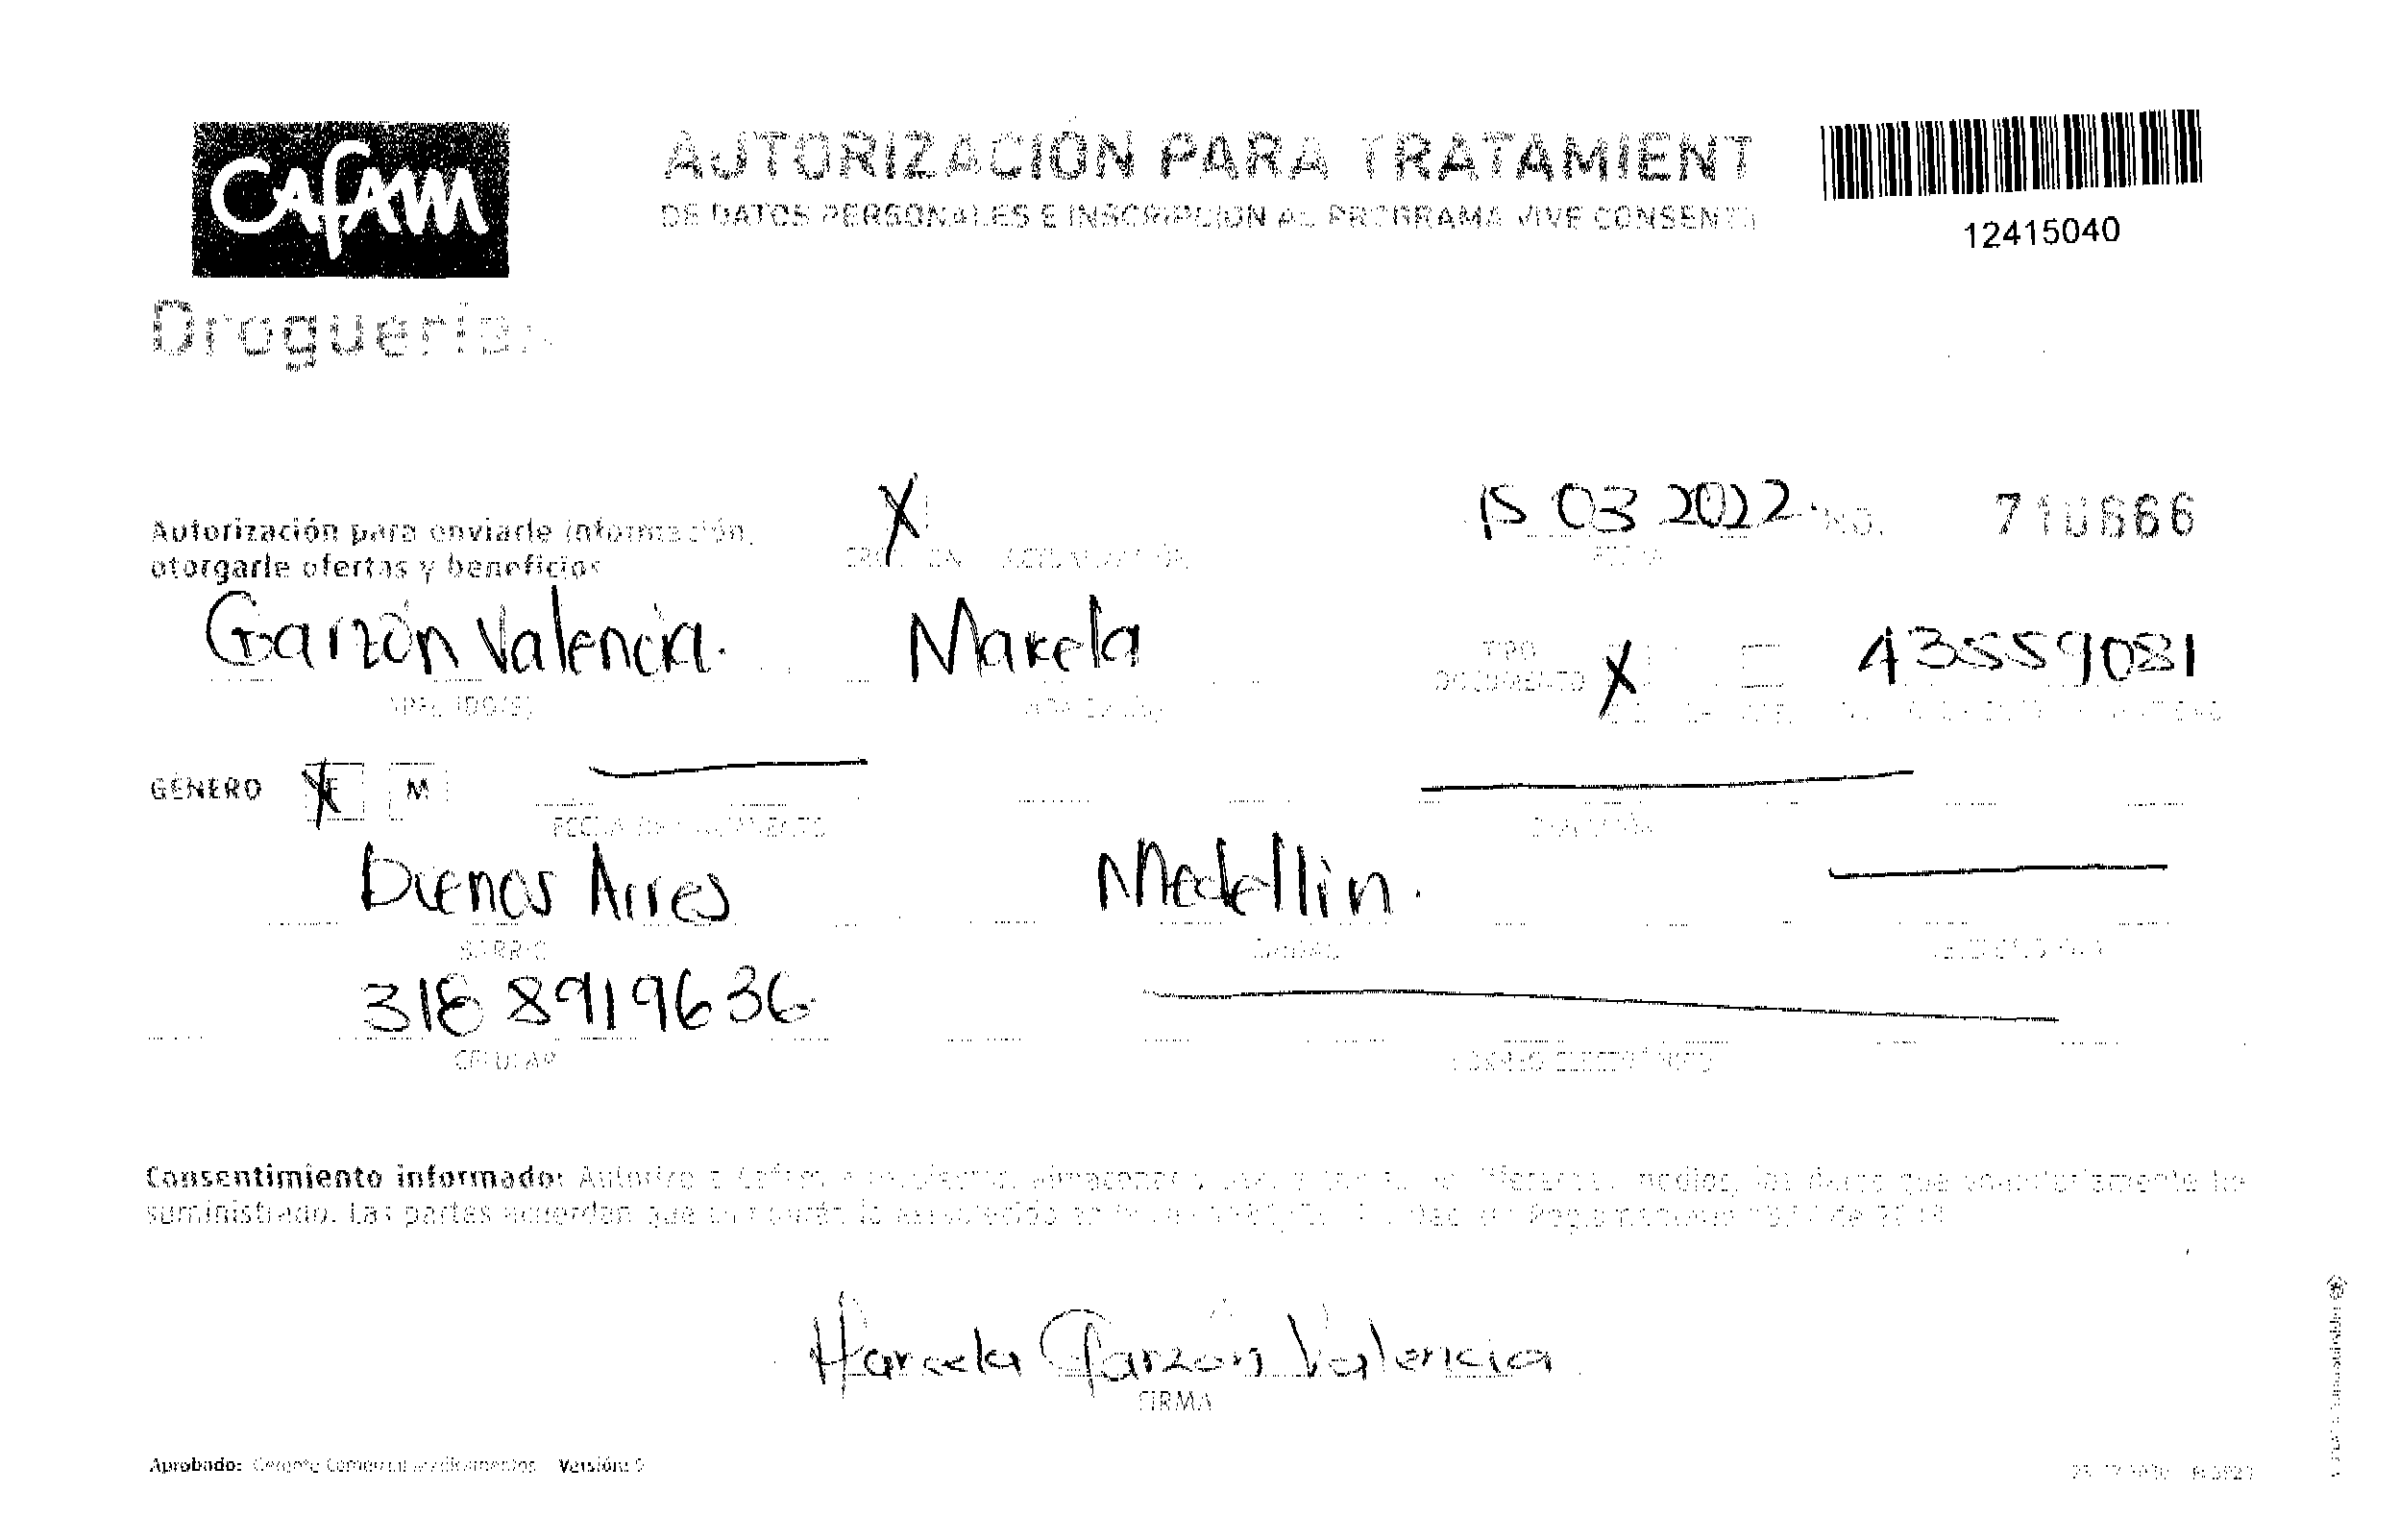 CAFAM
AUTORIZACIÓN PARA TRATAMIENT
DE DATOS PERSONALES E INSCRIPCIÓN AL PROGRAMA VIVE CONSENTI
12415040
Droguerías
Autorización para enviarle información,
otorgarle ofertas y beneficios
X
15 03 2022 NO. 710666
CREACIÓN ACTUALIZACIÓN FECHA
Garzón Valencia. Marcela TIPO DOCUMENTO X 43559081
APELLIDO(S) NOMBRE(S)
GÉNERO X F M
FECHA DE NACIMIENTO DIRECCIÓN
Buenos Aires Medellin.
BARRIO CIUDAD
318 8919636
CELULAR CORREO ELECTRÓNICO
Consentimiento informado: Autorizo a Cafam a recolectar, almacenar medios, los datos que voluntariamente he
suministrado. Las partes acuerdan que
Marcela Garzón Valencia
FIRMA
Aprobado: Gerente Comercial Medicamentos Versión: 9